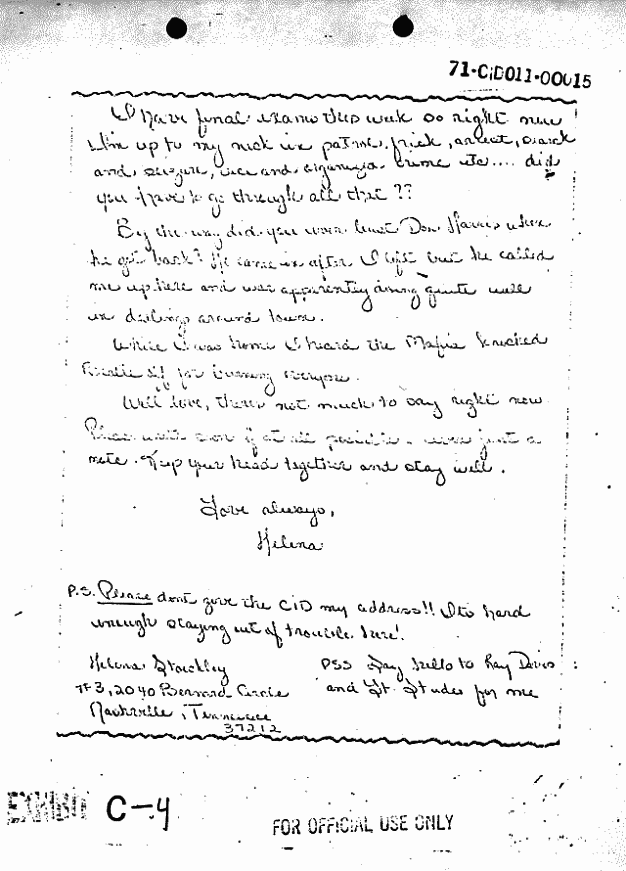 71-CID011-00015
I have final exams this week so right now
I'm up to my neck in patrol, frisk, arrest, search
and seizure, vice and organized crime etc.... did
you have to go through all that??
By the way did you ever bust Don Harris when
he got back? He came in after I left but he called
me up here and was apparently doing quite well
in dealings around town.
While I was home I heard the Mafia knocked
off for burning everyone.
Well love, there's not much to say right now.
Please write soon if at all possible - even just a
note. Keep your head together and stay well.
Love always,
Helena
P.S. Please don't give the CID my address!! It's hard
enough staying out of trouble here!
Helena Stoeckley
#3, 2040 Bernard Circle
Nashville, Tennessee
37212
PSS Say hello to Ray Davis
and Lt. Studer for me
EXHIBIT C-4
FOR OFFICIAL USE ONLY